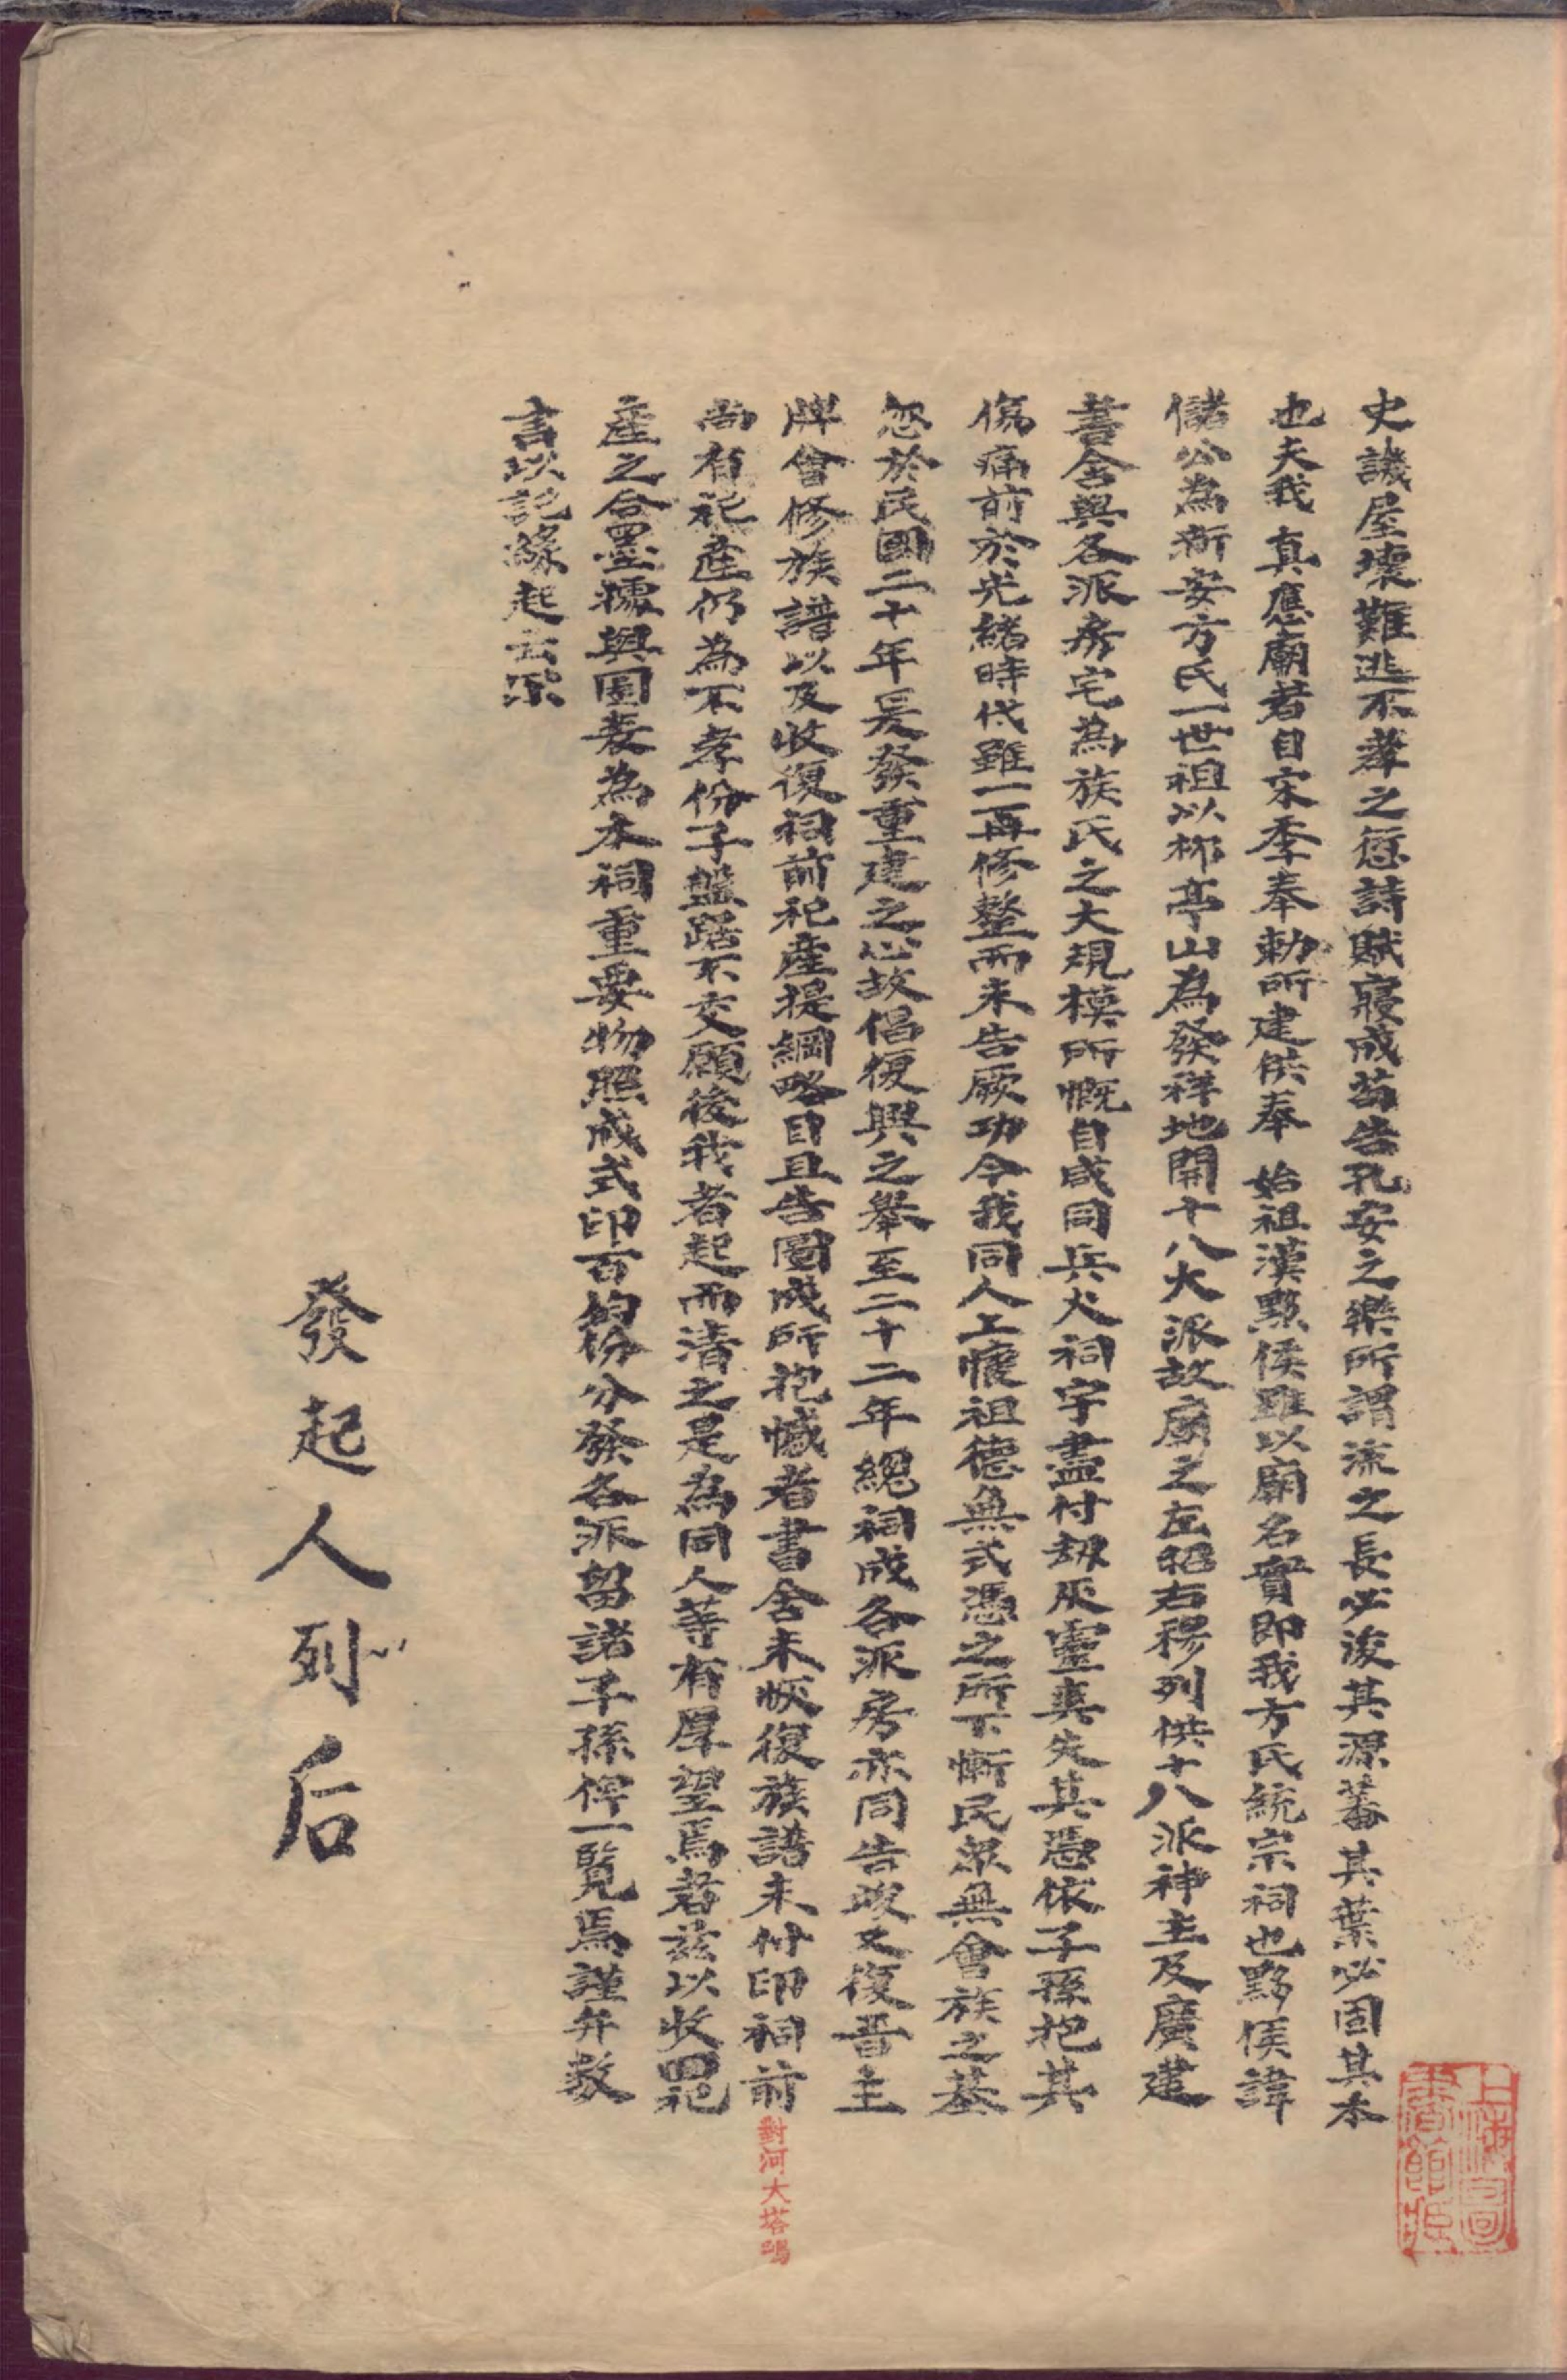 史譏屋壞難逃不孝之愆詩賦寢成茍告孔安之樂所謂流之長必浚其源蕃其葉必固其本
也夫我 真應廟者自宋季奉勅所建供奉 始祖漢黟侯雖以廟名實即我方氏統宗祠也黟侯諱
儲公為新安方氏一世祖以柳亭山為發祥地開十八大派故廟之左昭右穆列供十八派神主及廣建
書舍與各派房宅為族氏之大規模所慨自咸同兵火祠宇盡付刼灰靈爽失其憑依子孫抱其
傷痛前於光緒時代雖一再修整而未告厥功今我同人上懷祖德無式憑之所下慚民眾無會族之基
忽於民國二十年爰發重建之心故倡復興之舉至二十二年總祠成各派房亦同告竣又復晉主
牌會修族譜以及收復祠前祀產提綱略目且告圖成所抱憾者書舍未恢復族譜未付印祠前
對河大塔塢
尚有祀產仍為不孝份子盤踞不交願後我者起而清之是為同人等有厚望焉者茲以收回祀
產之合墨據與圖表為本祠重要物照成式印百份分發各派留諸子孫俾一覽焉謹弁數
言以記緣起云尔
發起人列后
上海圖書館藏